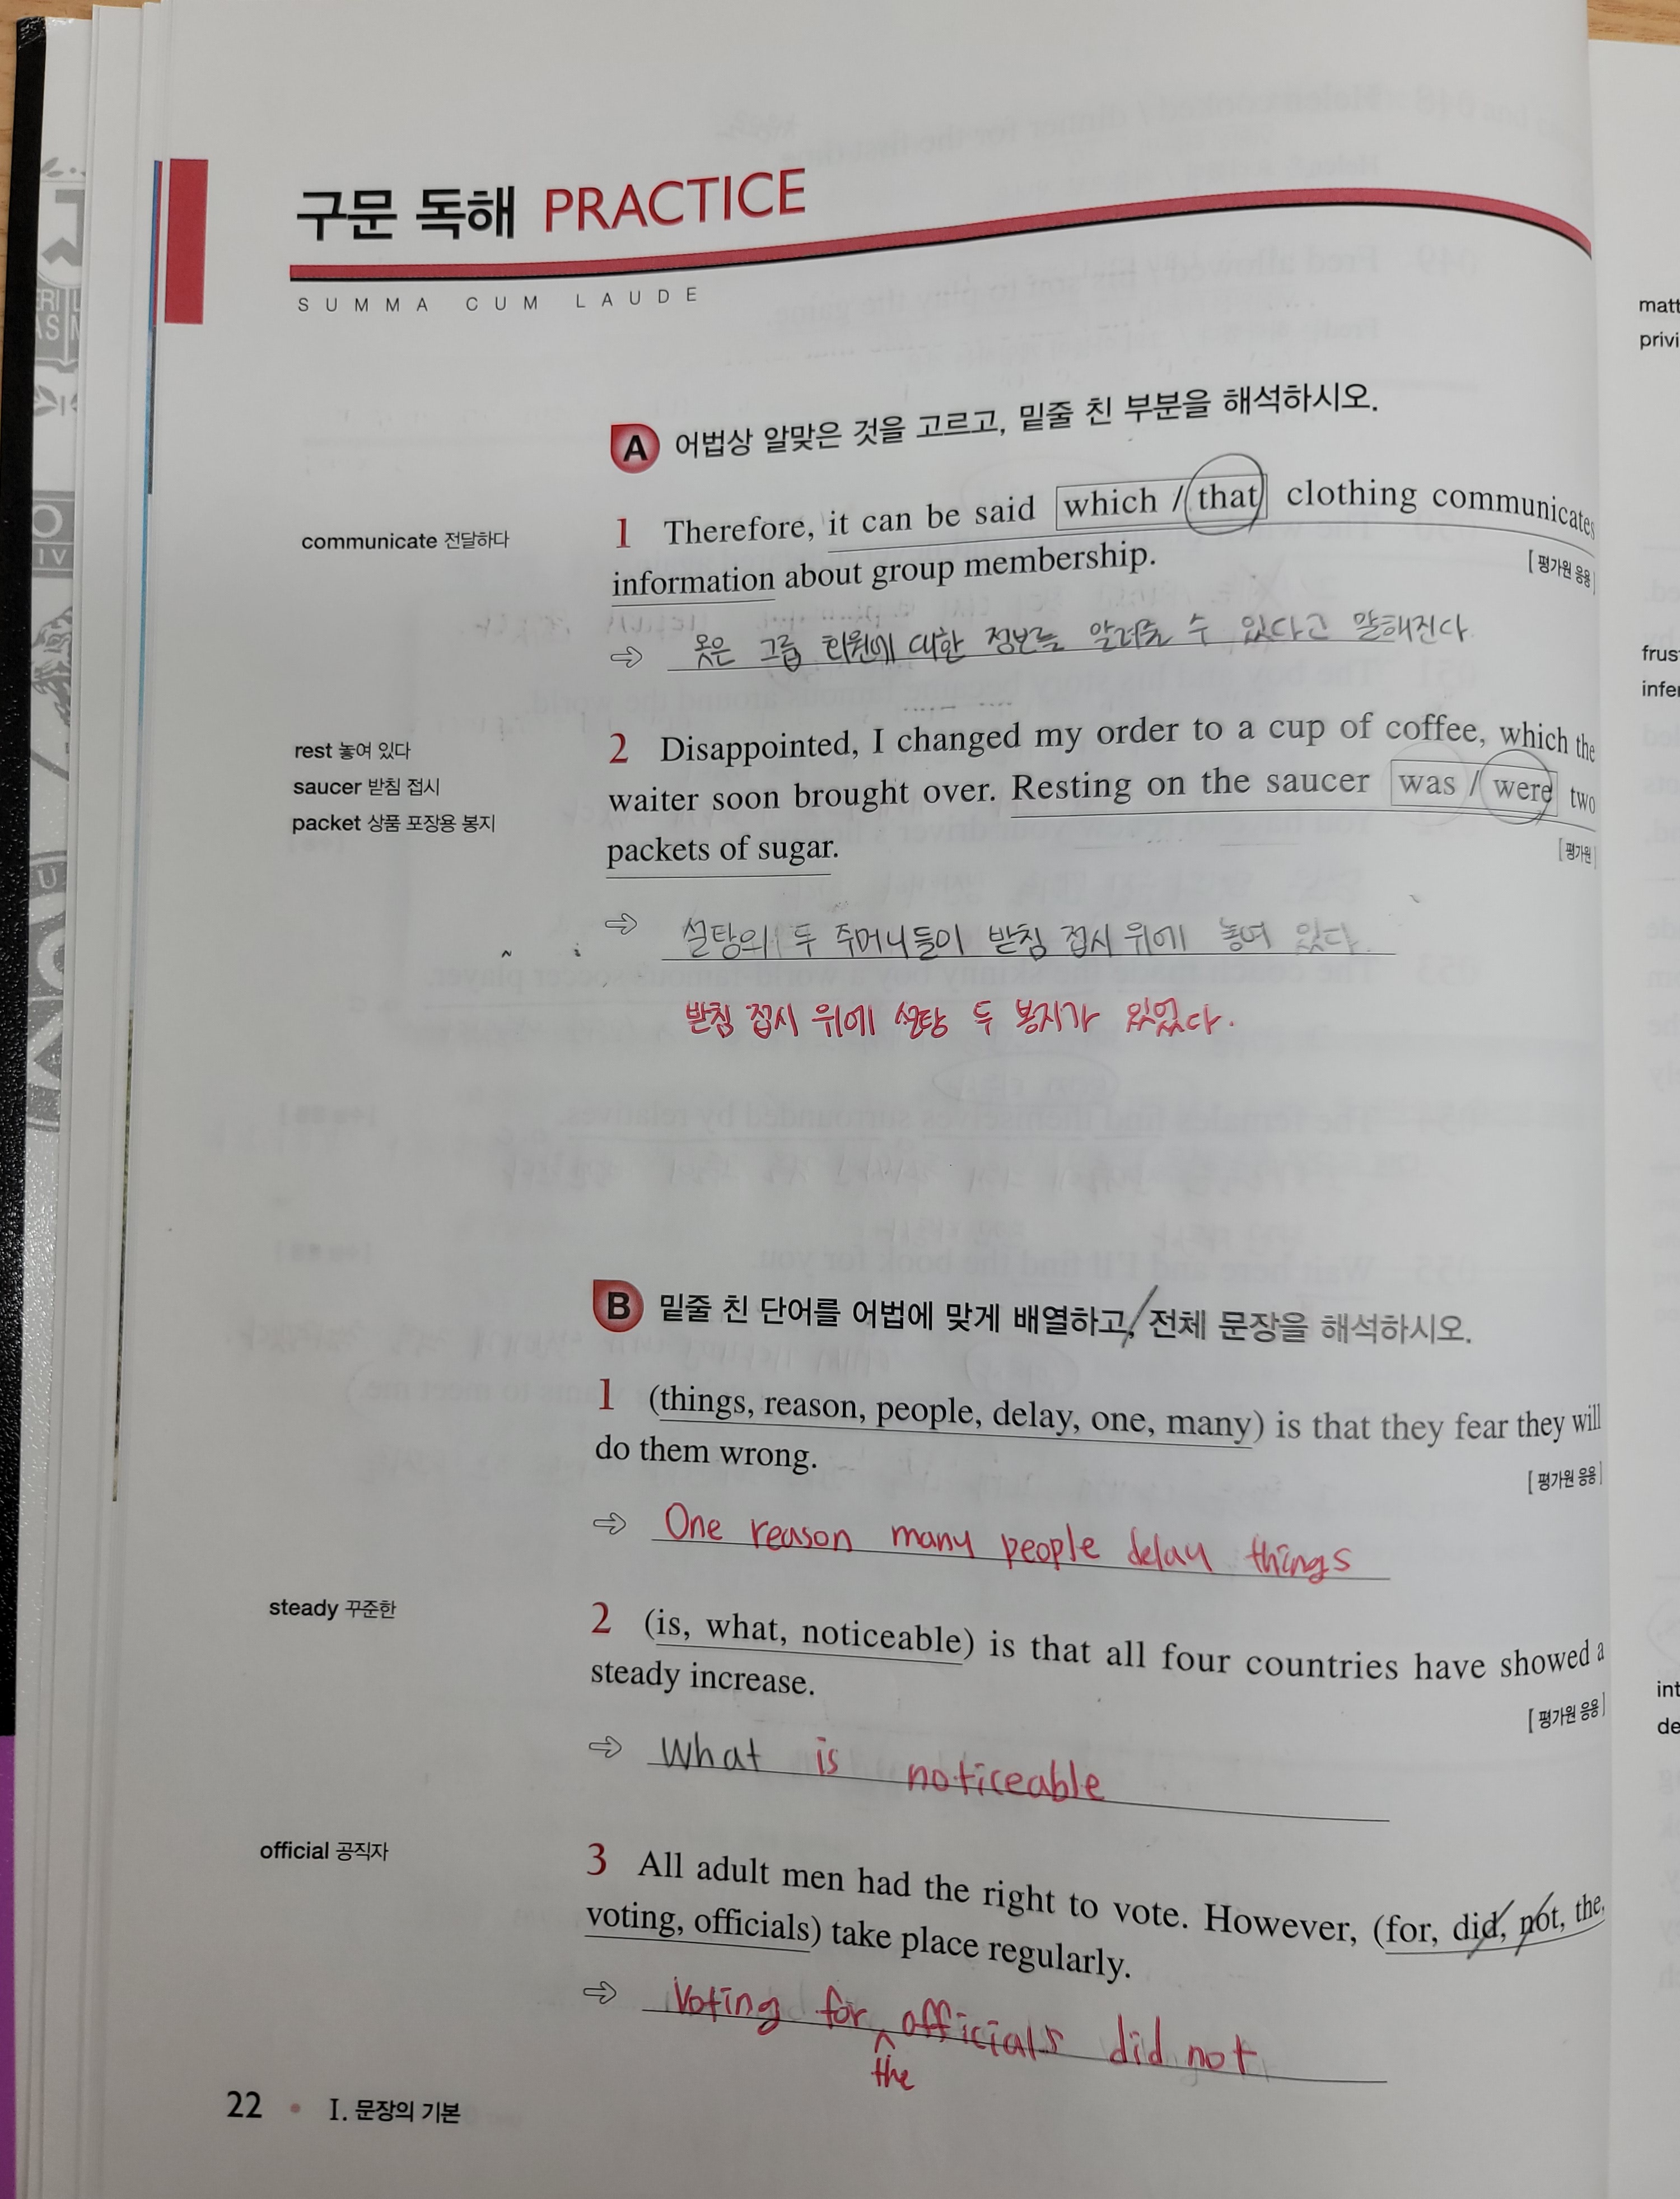 구문 독해 PRACTICE
SUMMA CUM LAUDE
A 어법상 알맞은 것을 고르고, 밑줄 친 부분을 해석하시오.
communicate 전달하다
1 Therefore, it can be said which / that clothing communicates
information about group membership.
[평가원 응용]
⇨ 옷은 그룹 회원에 대한 정보를 알려줄 수 있다고 말해진다
rest 놓여 있다
saucer 받침 접시
packet 상품 포장용 봉지
2 Disappointed, I changed my order to a cup of coffee, which the
waiter soon brought over. Resting on the saucer was / were two
packets of sugar.
[평가원]
⇨ 설탕의 두 주머니들이 받침 접시 위에 놓여 있다.
받침 접시 위에 설탕 두 봉지가 있었다.
B 밑줄 친 단어를 어법에 맞게 배열하고, 전체 문장을 해석하시오.
1 (things, reason, people, delay, one, many) is that they fear they will
do them wrong.
[평가원 응용]
⇨ One reason many people delay things
steady 꾸준한
2 (is, what, noticeable) is that all four countries have showed a
steady increase.
[평가원 응용]
⇨ What is noticeable
official 공직자
3 All adult men had the right to vote. However, (for, did, not, the,
voting, officials) take place regularly.
⇨ Voting for officials did not
the
22 • I. 문장의 기본
matt
privi
frus
infe
int
de